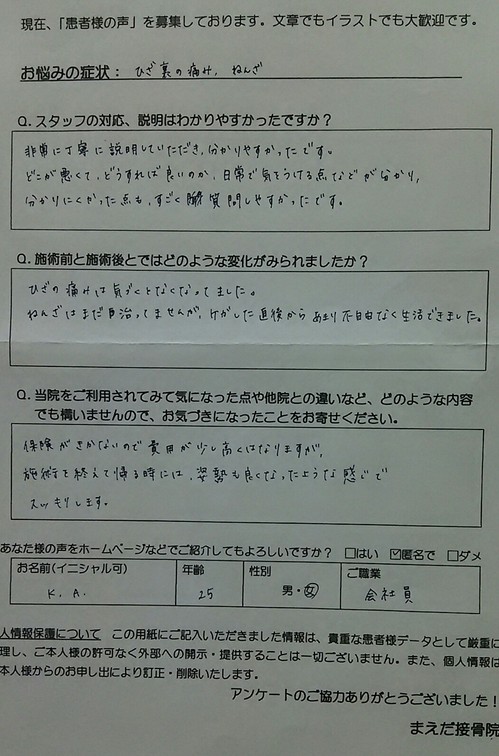 現在、「患者様の声」を募集しております。文章でもイラストでも大歓迎です。
お悩みの症状： ひざ裏の痛み、ねんざ
Q. スタッフの対応、説明はわかりやすかったですか？
非常に丁寧に説明していただき、分かりやすかったです。
どこが悪くて、どうすれば良いのか、日常で気をつける点などが分かり、
分かりにくかった点も、すごく質問しやすかったです。
Q. 施術前と施術後とではどのような変化がみられましたか？
ひざの痛みは気づくとなくなってました。
ねんざはまだ完治してませんが、けがした直後からあまり不自由なく生活できました。
Q. 当院をご利用されてみて気になった点や他院との違いなど、どのような内容
でも構いませんので、お気づきになったことをお寄せください。
保険がきかないので費用が少し高くはなりますが、
施術を終えて帰る時には、姿勢も良くなったような感じで
スッキリします。
あなた様の声をホームページなどでご紹介してもよろしいですか？ □はい ☑匿名で □ダメ
お名前(イニシャル可) 年齢 性別 ご職業
K. A. 25 男・女 会社員
人情報保護について この用紙にご記入いただきました情報は、貴重な患者様データとして厳重に
理し、ご本人様の許可なく外部への開示・提供することは一切ございません。また、個人情報は
本人様からのお申し出により訂正・削除いたします。
アンケートのご協力ありがとうございました！
まえだ接骨院